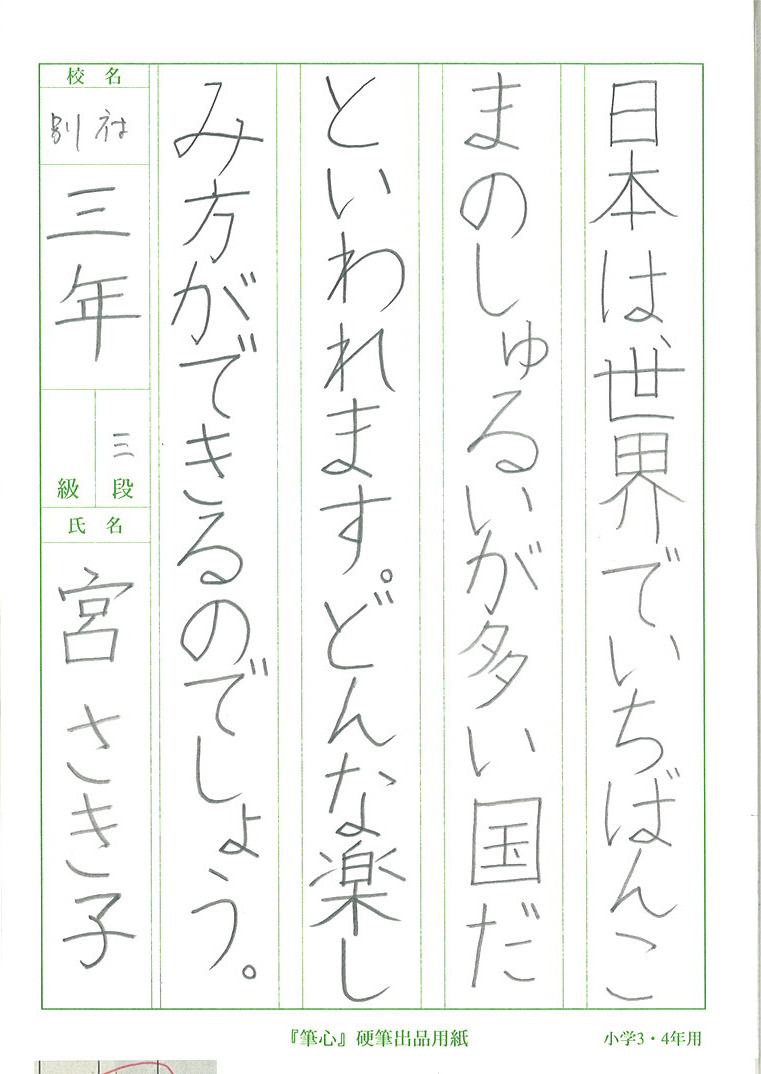 日本は、世界でいちばんこ
まのしゅるいが多い国だ
といわれます。どんな楽し
み方ができるのでしょう。
校名
別社
三年
三段
級
氏名
宮さき子
『筆心』硬筆出品用紙
小学3・4年用